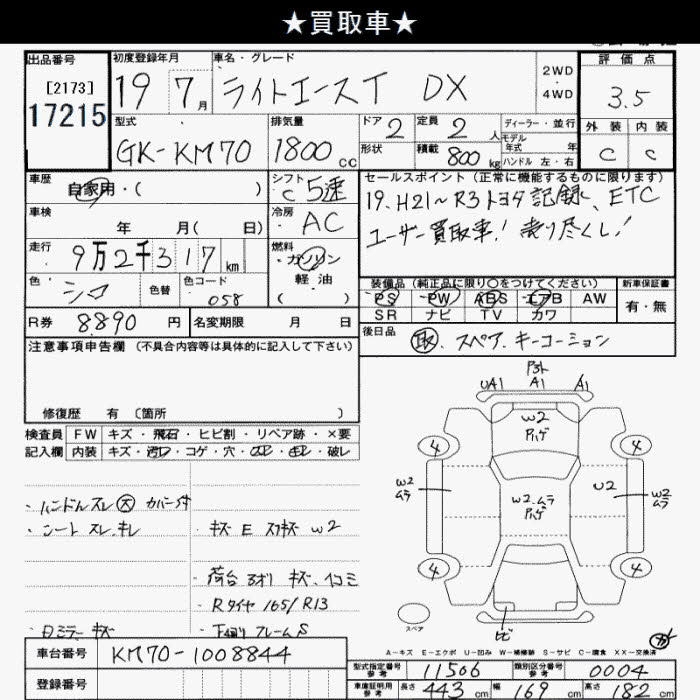 ★買取車★
出品番号 初度登録年月 車名・グレード 2WD・4WD 評価点
[2173]
17215
19 7月 ライトエースT DX 3.5
外装 内装
C C
型式 排気量 ドア 定員 ディーラー・並行
GK-KM70 1800cc 2 2人
形状 積載 800kg モデル年式 年
ハンドル 左・右
車歴 シフト セールスポイント(正常に機能するものに限ります)
自家用・( ) C 5速
19.H21~R3トヨタ記録、ETC
ユーザー買取車!売り尽くし!
車検 冷房
年 月( 日) AC
走行 燃料
9万2千317km ガソリン
軽油
( )
色 色替 色コード
シロ 058
装備品(純正品に限り○をつけてください) 新車保証書
PS PW ABS エアB AW 有・無
SR ナビ TV カワ
R券 8890円 名変期限 月 日
後日品
取、スペア、キーコーション
注意事項申告欄(不具合内容等は具体的に記入して下さい)
修復歴 有 〔箇所 〕
検査員 FW キズ・飛石・ヒビ割・リペア跡・×要
記入欄 内装 キズ・汚レ・コゲ・穴・破レ
・ハンドルスレ大 カバー付
・シート スレ、キレ
・キズ E スリキズ W2
・荷台 サビ キズ、ヘコミ
・Rタイヤ 165/R13
・日ミラー キズ
・下廻り フレームS
UA1 A1 A1
W2
ハゲ
4 4
W2
ムラ
W2.ムラ
ハゲ
U2
W2
ムラ
4 4
スペア
A-キズ E-エクボ U-凹み W-補修跡 S-サビ C-腐食 XX-交換済
車台番号 KM70-1008844
登録番号
型式指定番号 参考 11506 類別区分番号 参考 0004
車庫証明用 参考 長さ 443cm 幅 169cm 高さ 82cm